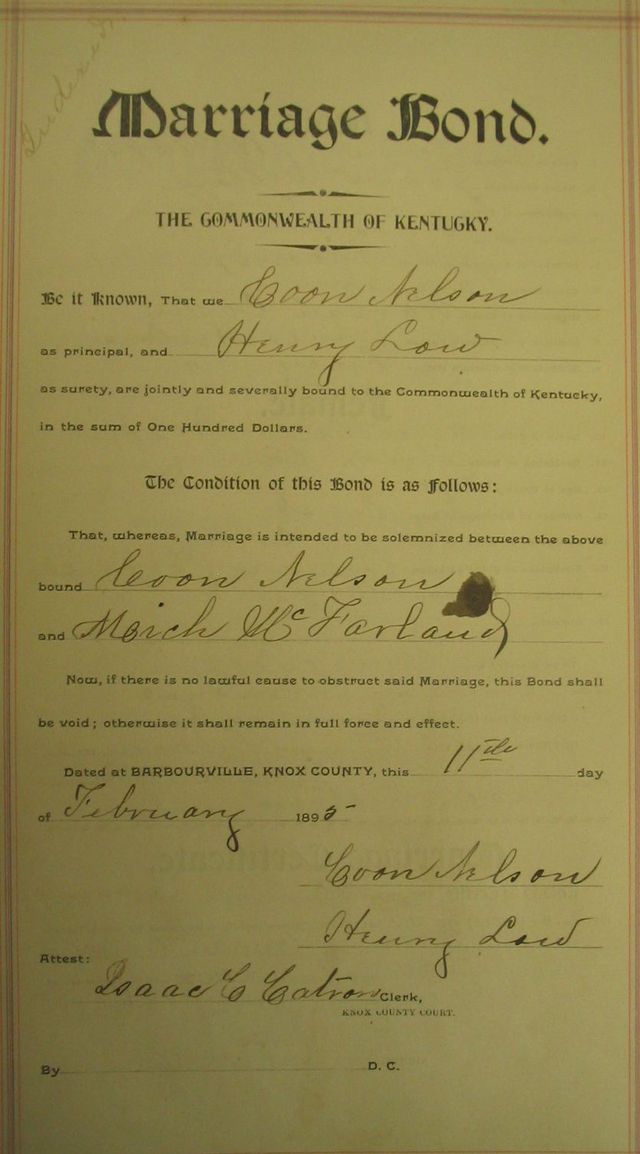 Marriage Bond.
THE COMMONWEALTH OF KENTUCKY.
Be it Known, That we Coon Nelson
as principal, and Henry Low
as surety, are jointly and severally bound to the Commonwealth of Kentucky,
in the sum of One Hundred Dollars.
The Condition of this Bond is as Follows:
That, whereas, Marriage is intended to be solemnized between the above
bound Coon Nelson
and Mc Farland
Now, if there is no lawful cause to obstruct said Marriage, this Bond shall
be void; otherwise it shall remain in full force and effect.
Dated at BARBOURVILLE, KNOX COUNTY, this 11th day
of February 1895
Coon Nelson
Henry Low
Attest:
Isaac C Catron Clerk,
KNOX COUNTY COURT.
By D. C.